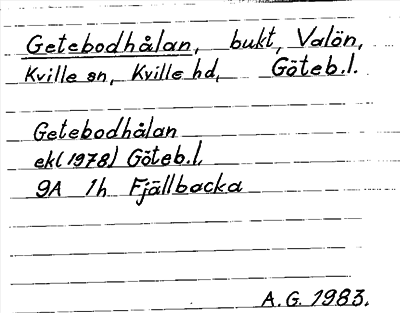 Getebodhålan, bukt, Valön,
Kville sn, Kville hd, Göteb.l.
Getebodhålan
ek(1978) Göteb.l.
9A 1h Fjällbacka
A.G. 1983.